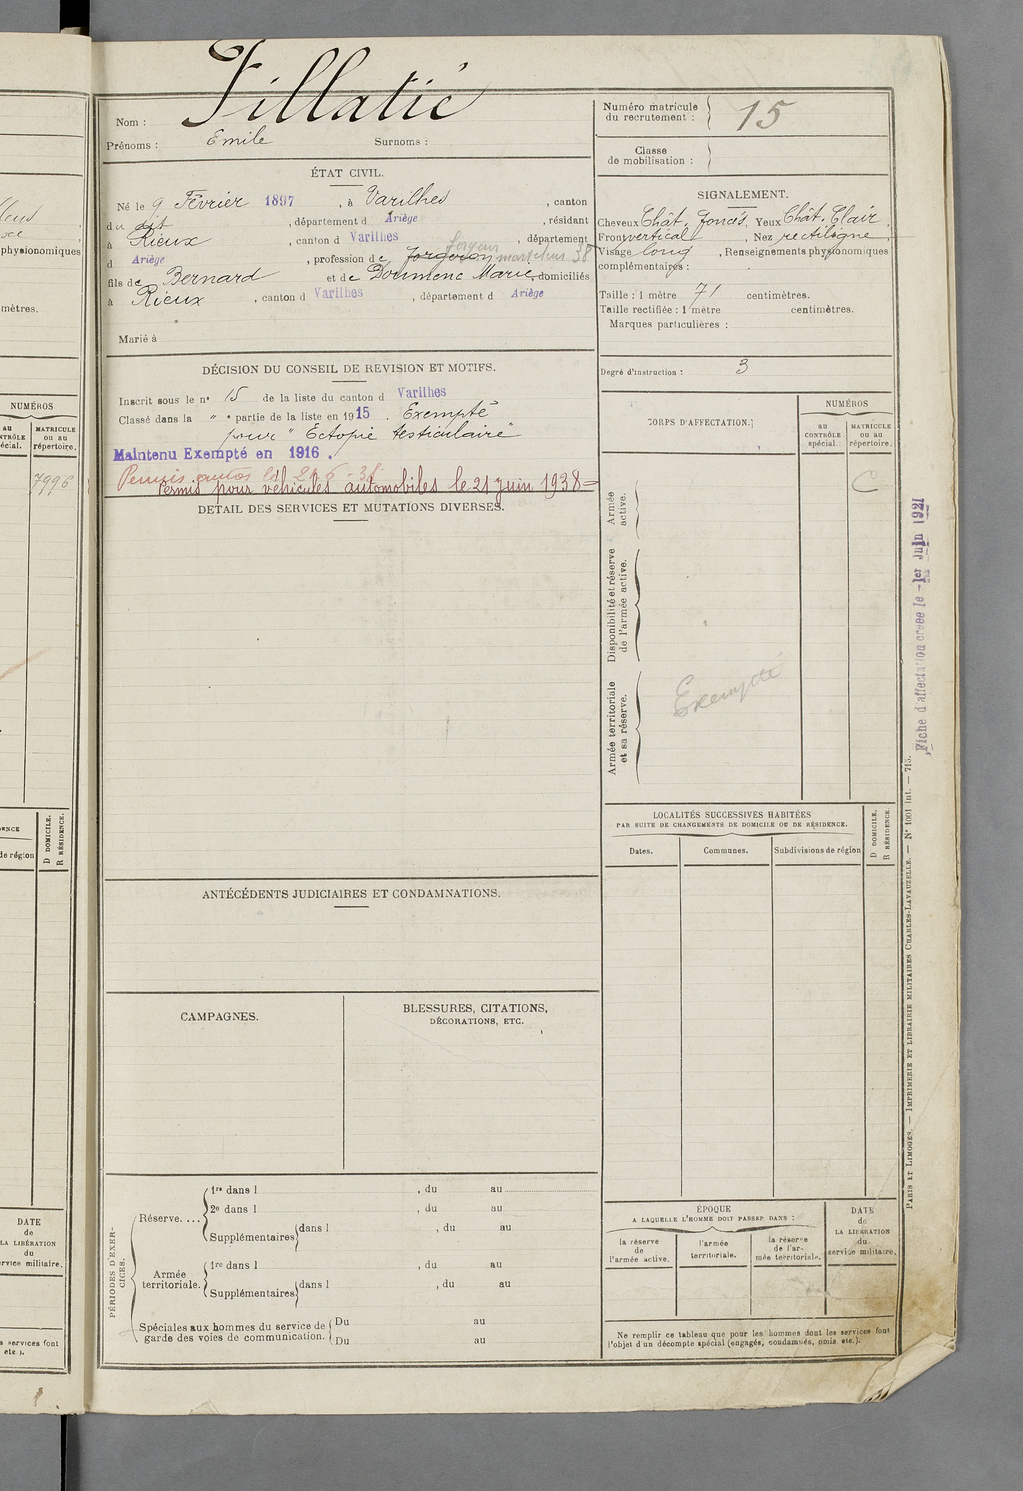 Nom : Fillatié
Prénoms : Emile Surnoms :
Numéro matricule
du recrutement : 15
Classe
de mobilisation :
ÉTAT CIVIL.
Né le 9 Février 1897, à Varilhes, canton
du dit, département d Ariège, résidant
à Rieux, canton d Varilhes, département
d Ariège, profession de
fils de Bernard et de Doumenc Marie, domiciliés
à Rieux, canton d Varilhes, département d Ariège
Marié à
SIGNALEMENT.
Cheveux Chât. foncés, Yeux Chât. Clair
Front vertical, Nez rectiligne
Visage long, Renseignements physionomiques
complémentaires :
Taille : 1 mètre 71 centimètres.
Taille rectifiée : 1 mètre centimètres.
Marques particulières :
Degré d'instruction : 3
DÉCISION DU CONSEIL DE REVISION ET MOTIFS.
Inscrit sous le n° 15 de la liste du canton d Varilhes
Classé dans la " e partie de la liste en 1915. Exempté
pour "Ectopie testiculaire"
Maintenu Exempté en 1916.
Permis autos le 21-6-38
Permis pour véhicules automobiles le 21 juin 1938=
DETAIL DES SERVICES ET MUTATIONS DIVERSES.
CORPS D'AFFECTATION.
NUMÉROS
au
CONTRÔLE
spécial.
MATRICULE
ou au
répertoire.
C
Armée
active.
Disponibilité et réserve
de l'armée active.
Armée territoriale
et sa réserve.
Exempté
Fiche d'affectation créée le -1er Juin 1921
LOCALITÉS SUCCESSIVES HABITÉES
PAR SUITE DE CHANGEMENTS DE DOMICILE OU DE RÉSIDENCE.
Dates.
Communes.
Subdivisions de région
D DOMICILE.
R RÉSIDENCE.
ANTÉCÉDENTS JUDICIAIRES ET CONDAMNATIONS.
CAMPAGNES.
BLESSURES, CITATIONS,
DÉCORATIONS, ETC.
PÉRIODES D'EXERCICES.
Réserve....
1re dans l , du au
2e dans l , du au
Supplémentaires dans l , du au
Armée
territoriale.
1re dans l , du au
Supplémentaires dans l , du au
Spéciales aux hommes du service de
garde des voies de communication.
Du au
Du au
ÉPOQUE
A LAQUELLE L'HOMME DOIT PASSER DANS :
la réserve
de
l'armée active.
l'armée
territoriale.
la réserve
de l'ar-
mée territoriale.
DATE
de
LA LIBÉRATION
du
service militaire.
Ne remplir ce tableau que pour les hommes dont les services font
l'objet d'un décompte spécial (engagés, condamnés, omis etc.).
PARIS ET LIMOGES. — IMPRIMERIE ET LIBRAIRIE MILITAIRES CHARLES-LAVAUZELLE. — N° 1001 int. — 715.
physionomiques
mètres.
NUMÉROS
AU
CONTRÔLE
spécial.
MATRICULE
ou au
répertoire.
7996
de région
D DOMICILE.
R RÉSIDENCE.
DATE
de
LA LIBÉRATION
du
service militaire.
s services font
etc.).